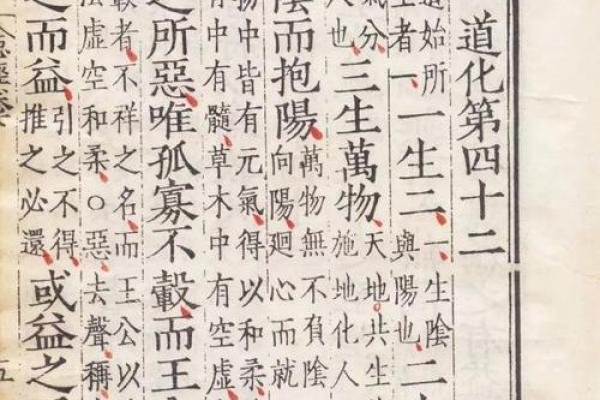 道化第四十二
始所
生者一
一生二
一生陰
與陽也
二
氣分
人也
三生萬物
天地共生
施地化人
陰而抱陽
萬物無不負陰
向陽廻心而就
物中皆有元氣得以和柔
中有髓草木中有空虛
之所惡唯孤寡不轂而王
轂者不祥之名而王公以
法虛空和柔○惡去聲稱
之而益
引之不得
推之必還
或益之
五